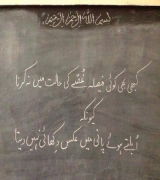 بسم اللہ الرحمن الرحیم
کبھی بھی کوئی فیصلہ غصے کی حالت میں نہ کرنا
کیونکہ
اُبلتے ہوئے پانی میں عکس دکھائی نہیں دیتا